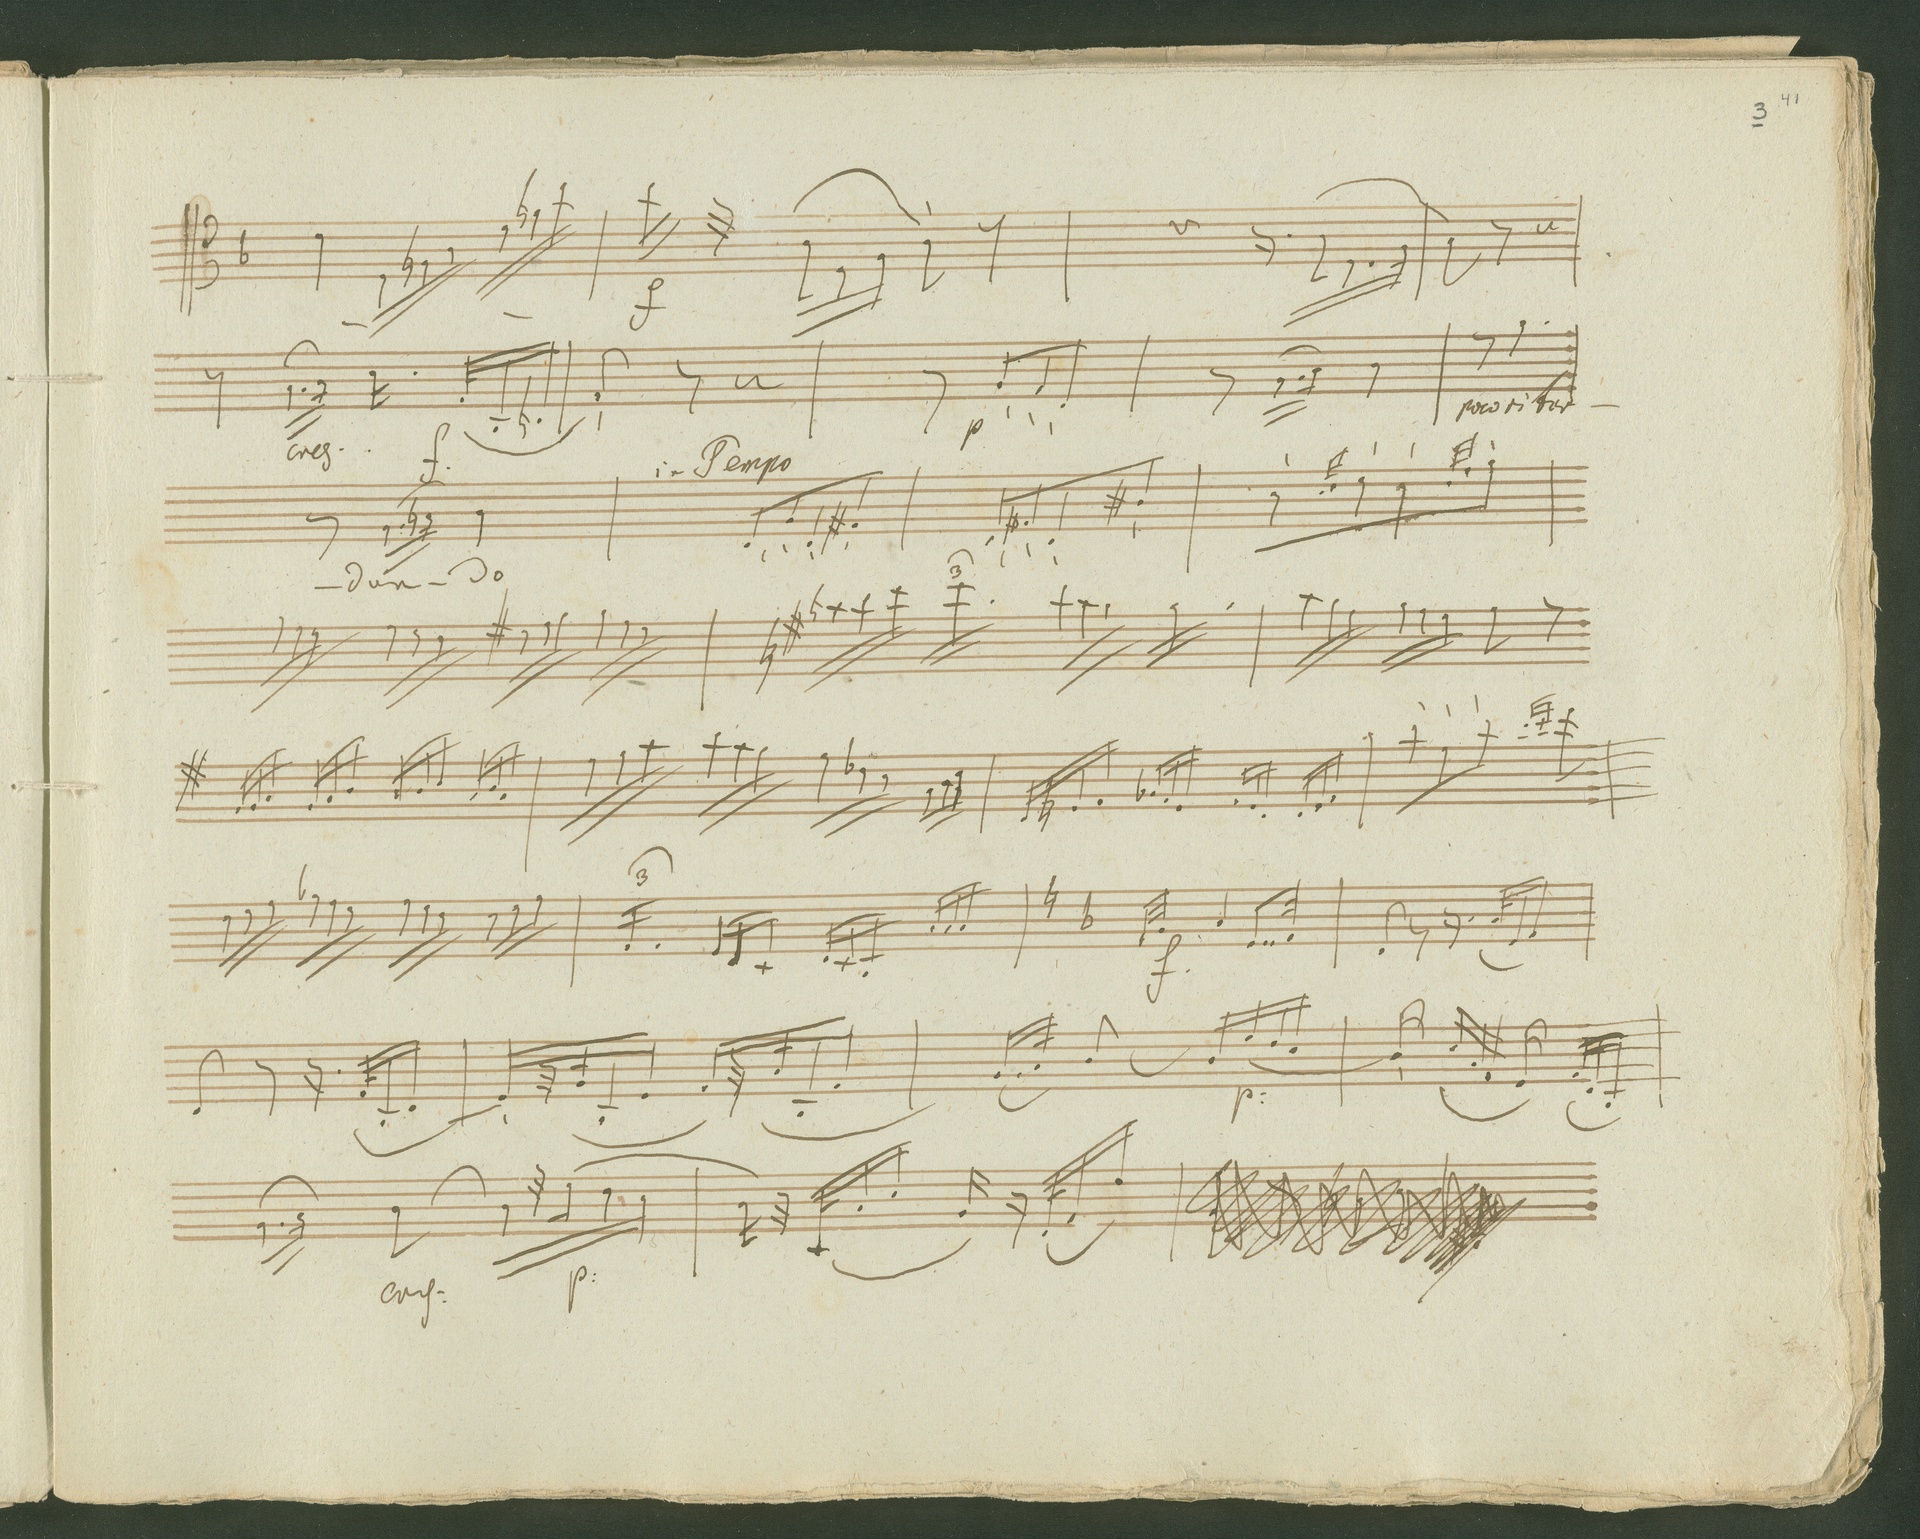 3 41
f
cres. f. p poco ritar-
in Tempo
-dan-do
3
3
f.
p:
cres: p: